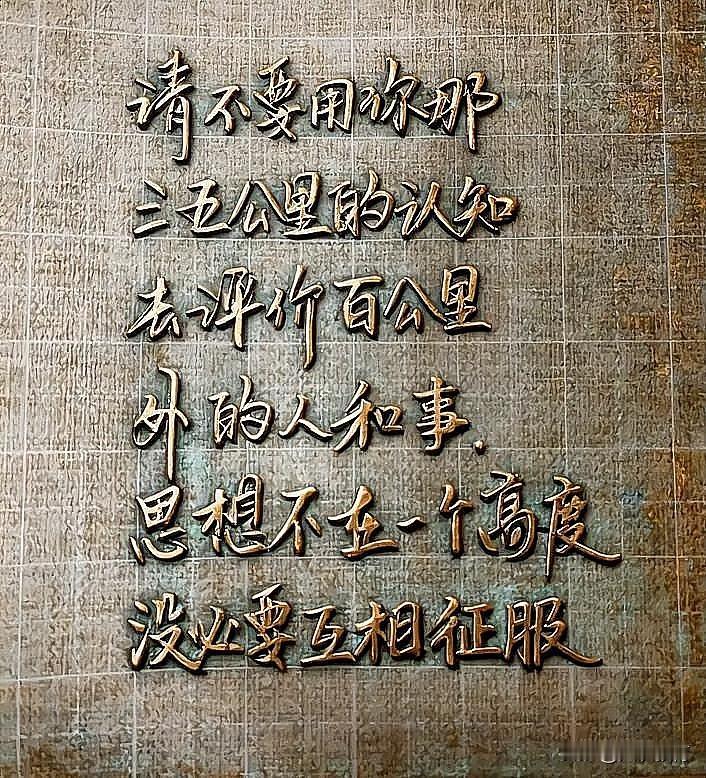 请不要用你那
三五公里的认知
去评价百公里
外的人和事.
思想不在一个高度
没必要互相征服